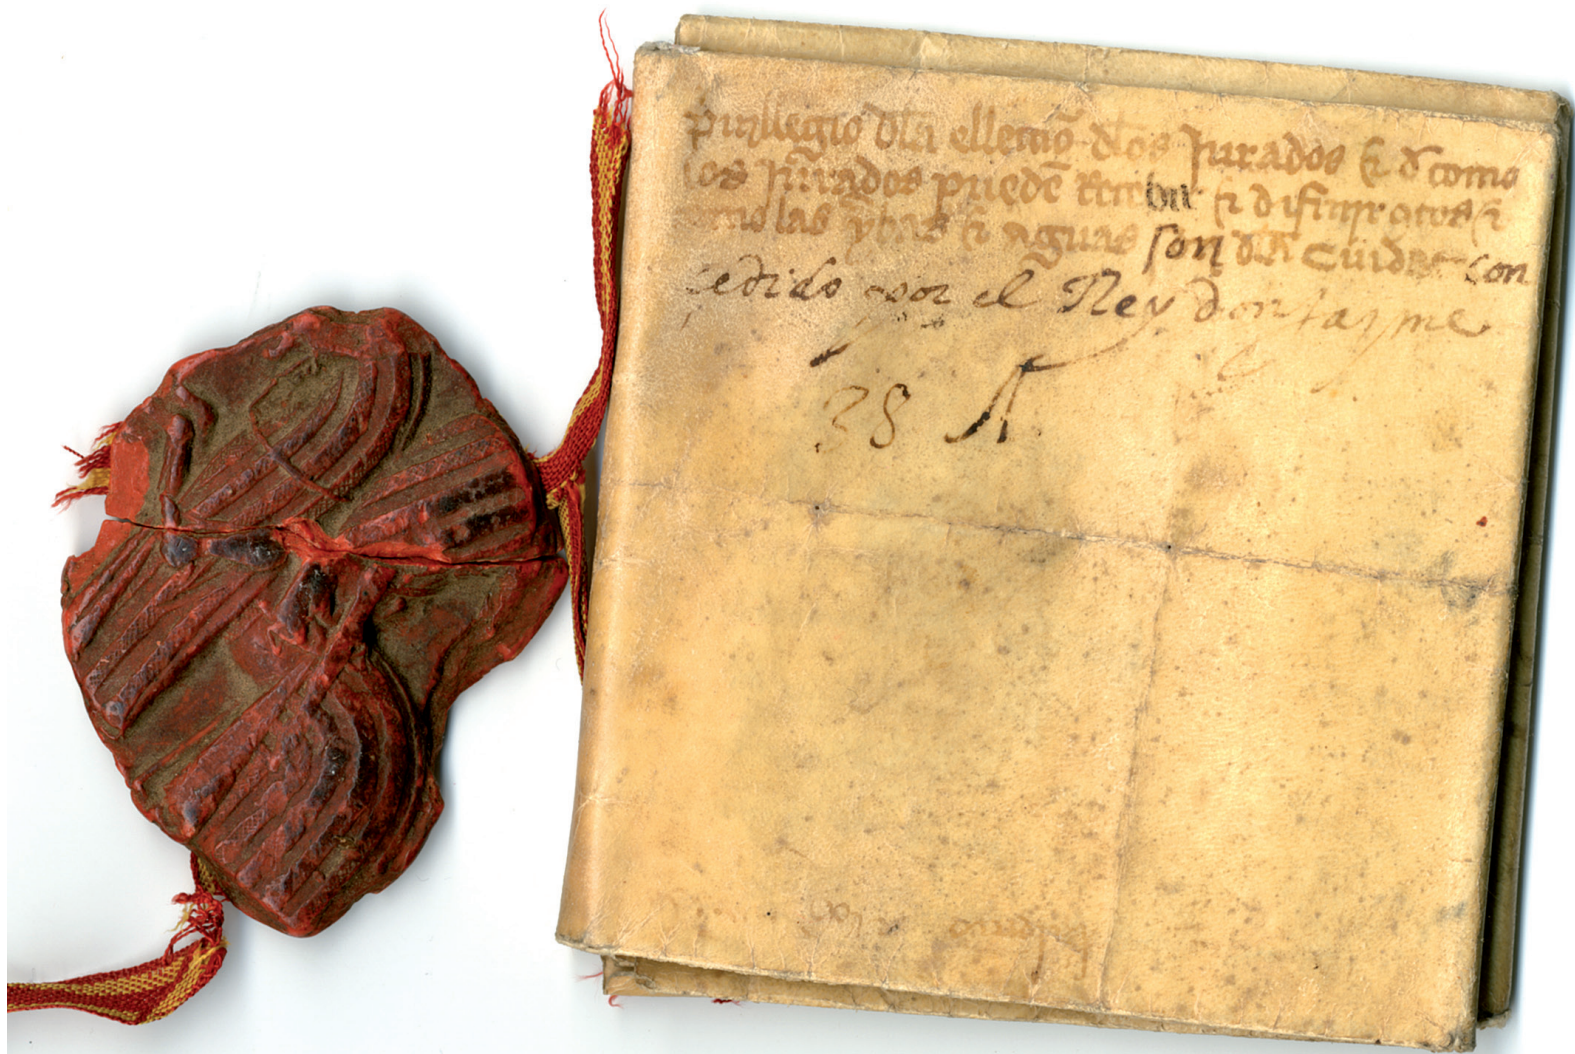 priullegio dla ellecio dlos Jurados & d como
los Jurados puede recebir & difinir otros &
como las yбas & aguas son dla Ciudat con
cedido por el Rey don Jayme
38 A